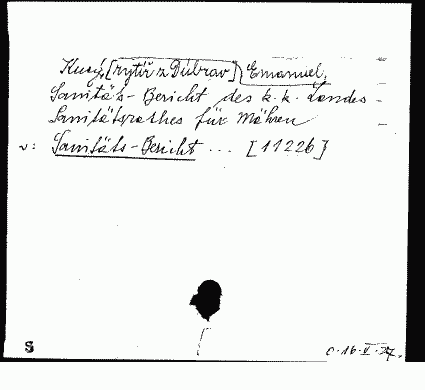 Kusý, [rytíř z Dúbrav] Emanuel,
Sanitäts-Bericht des k. k. Landes-
Sanitätsrathes für Mähren
v: Sanitäts-Bericht ... [11226]
S